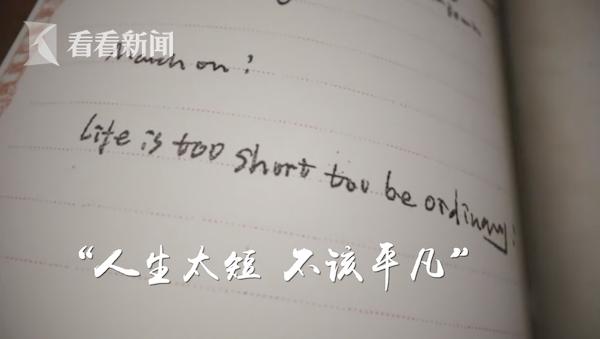 看看新闻
March on!
Life is too short too be ordinary!
“人生太短 不该平凡”